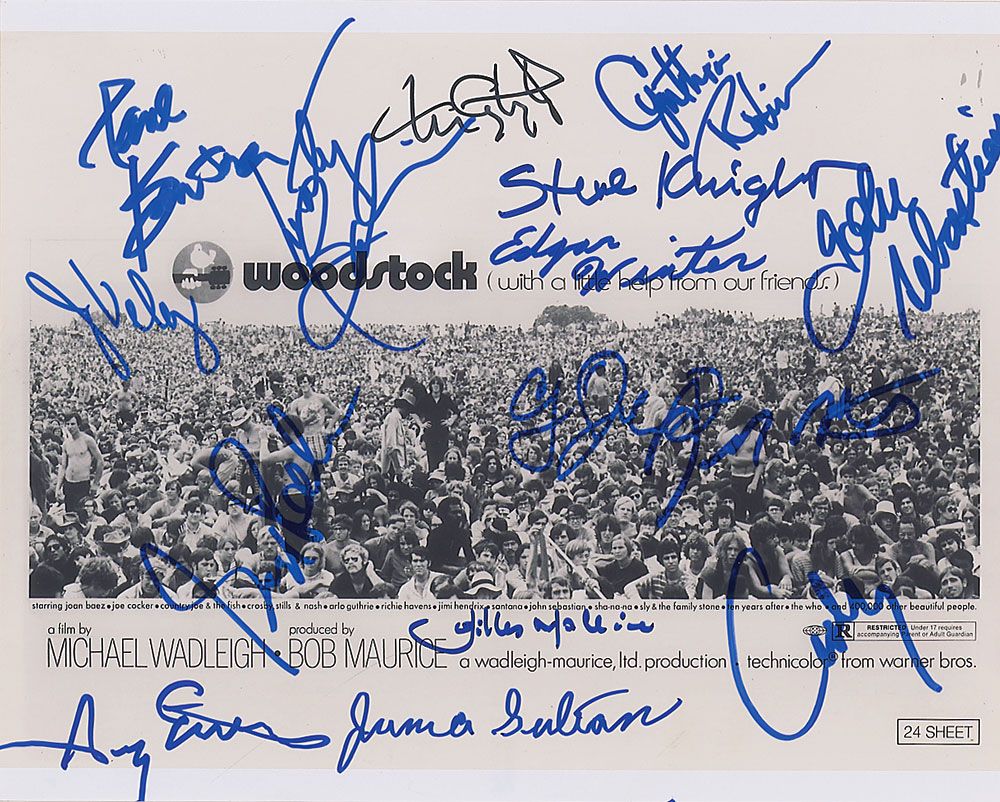 Paul
Kantner
Cynthia
Robin
Steve Knight
Edgar
Winter
John
Sebastian
woodstock (with a little help from our friends.)
starring joan baez • joe cocker • country joe & the fish • crosby, stills & nash • arlo guthrie • richie havens • jimi hendrix • santana • john sebastian • sha-na-na • sly & the family stone • ten years after • the who • and 400,000 other beautiful people.
a film by
MICHAEL WADLEIGH •
produced by
BOB MAURICE
a wadleigh-maurice, ltd. production • technicolor® from warner bros.
R RESTRICTED Under 17 requires
accompanying Parent or Adult Guardian
Gilles Malkine
Juma Sultan
24 SHEET